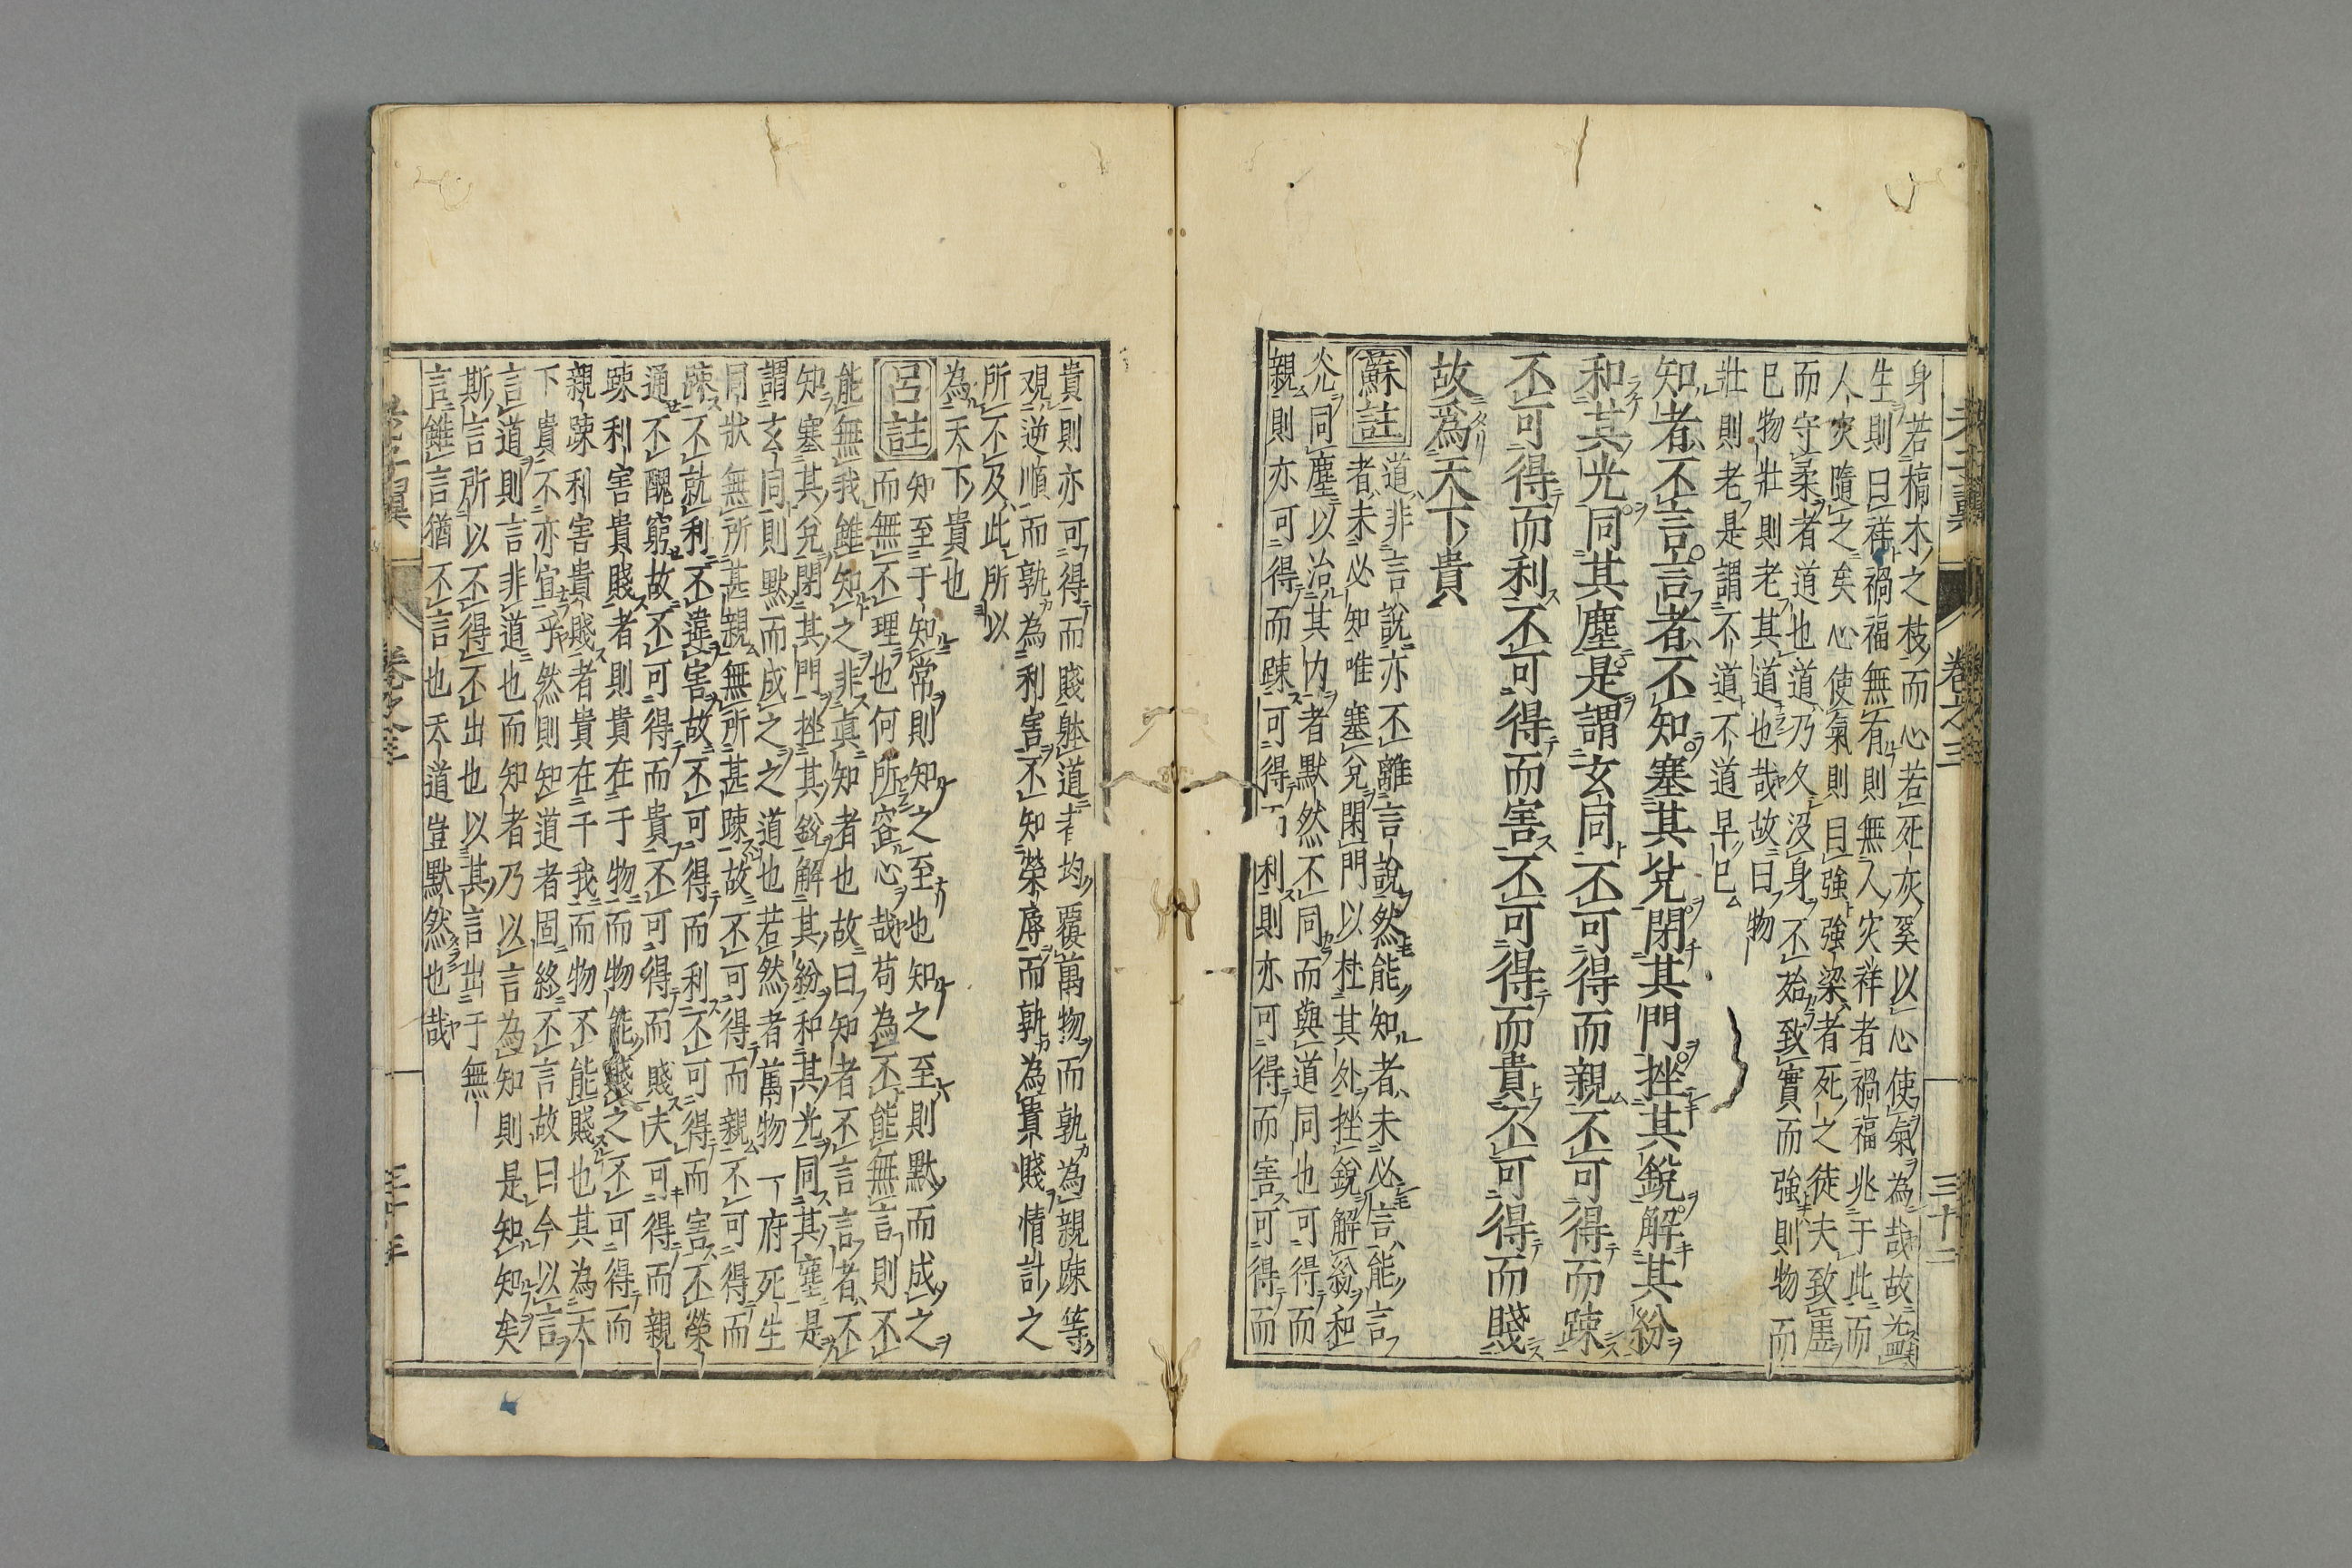 老子翼 卷之三 三十二
身若槁木之枝而心若死灰奚以心使氣為哉故益
生則曰祥禍福無有則無人灾祥者禍福兆于此而
人灾隨之矣心使氣則曰強強梁者死之徒夫致虛
而守柔者道也道乃久沒身不殆致實而強則物而
已物壯則老其道也哉故曰物
壯則老是謂不道不道早已
知者不言言者不知塞其兌閉其門挫其銳解其紛
和其光同其塵是謂玄同不可得而親不可得而踈
不可得而利不可得而害不可得而貴不可得而賤
故為天下貴
蘇註 道非言說亦不離言說然能知者未必言能言
者未必知唯塞兌閉門以杜其外挫銳解紛和
光同塵以治其內者默然不同而與道同也可得而
親則亦可得而踈可得而利則亦可得而害可得而
貴則亦可得而賤躰道者均覆萬物而孰為親踈等
觀逆順而孰為利害不知榮辱而孰為貴賤情計之
所不及此所以
為天下貴也
呂註 知至于知常則知之至也知之至則默而成之
而無不理也何所容心哉苟為不能無言則不
能無我雖知之非真知者也故曰知者不言言者不
知塞其兌閉其門挫其銳解其紛和其光同其塵是
謂玄同則默而成之之道也若然者萬物一府死生
同狀無所甚親無所甚踈故不可得而親不可得而
踈不就利不違害故不可得而利不可得而害不榮
通不醜窮故不可得而貴不可得而賤夫可得而親
踈利害貴賤者則貴在于物而物能賤之不可得而
親踈利害貴賤者貴在于我而物不能賤也其為天
下貴不亦宜乎然則知道者固終不言故曰今以言
言道則言非道也而知者乃以言為知則是知知矣
斯言所以不得不出也以其言出于無
言雖言猶不言也天道豈默然也哉
老子翼 卷之三